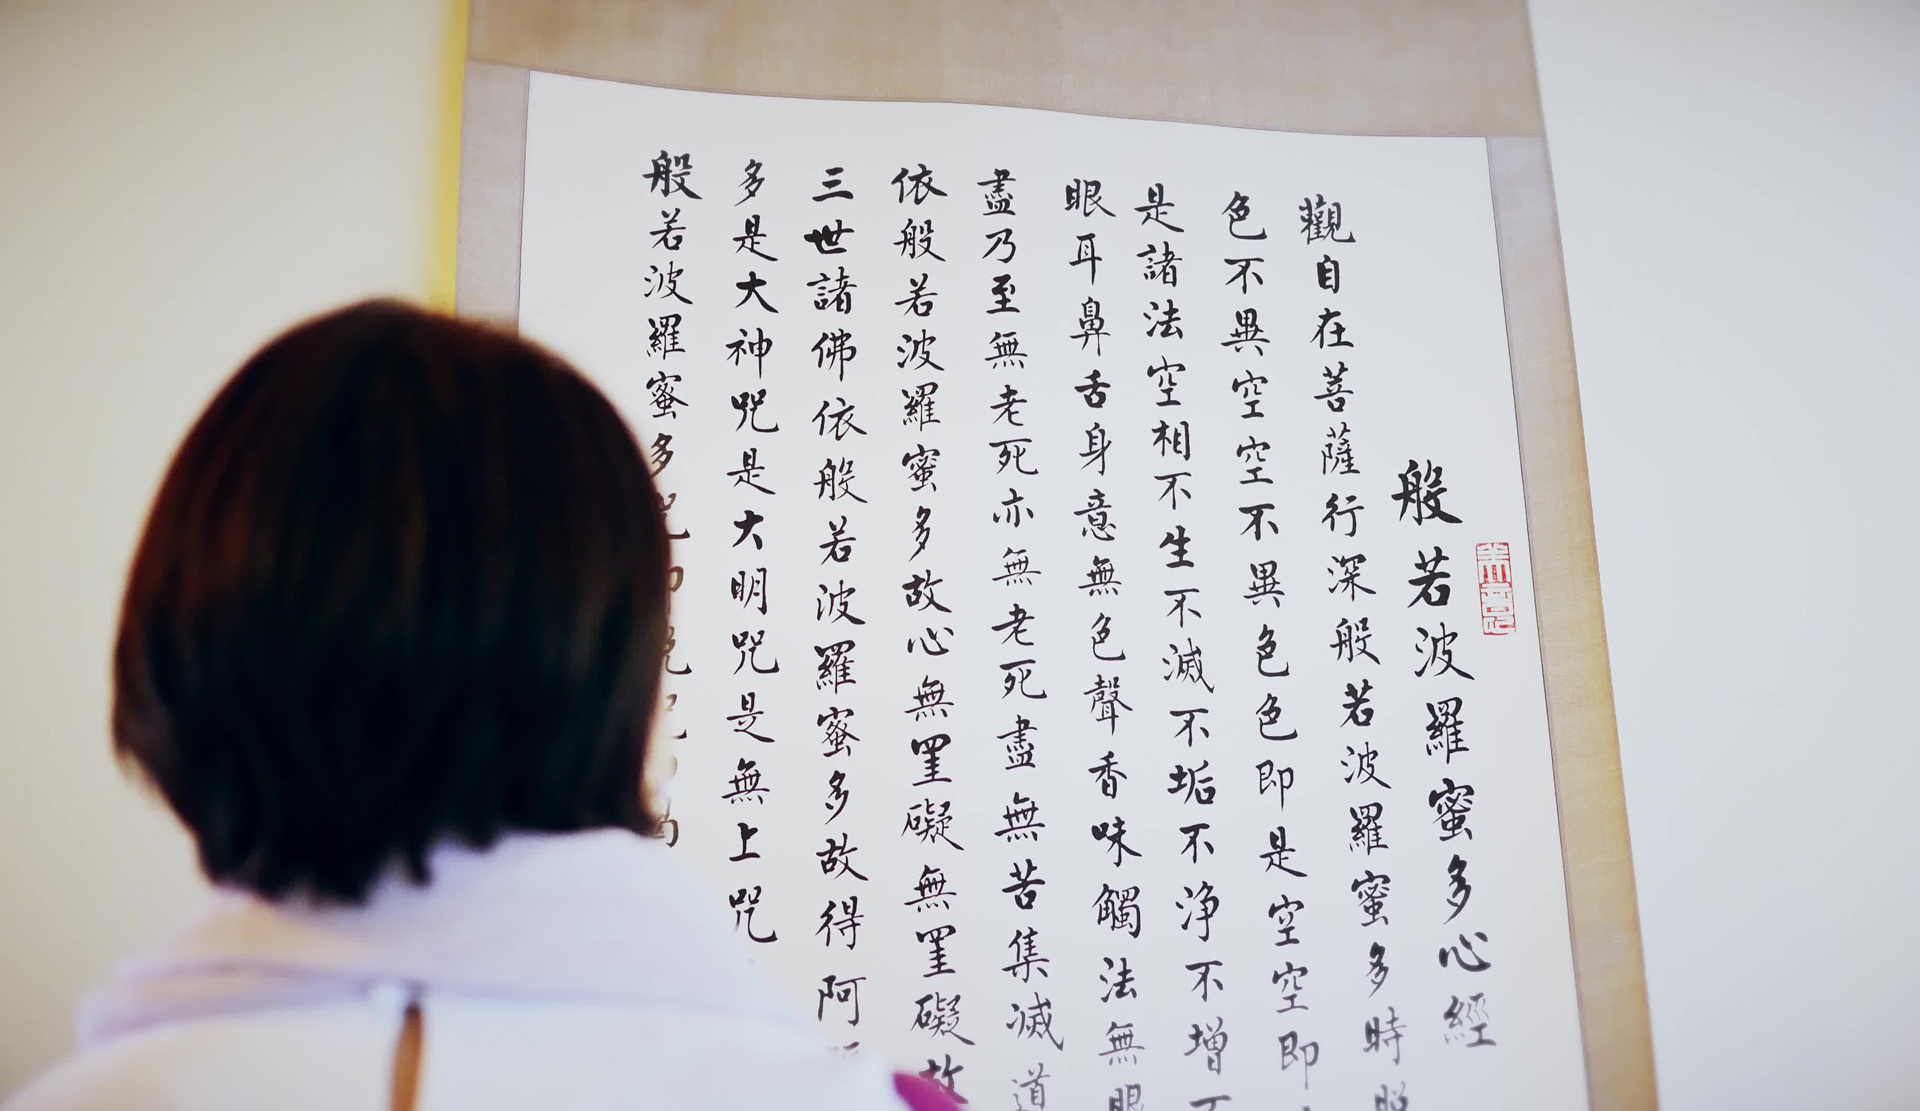 般若波羅蜜多心經
觀自在菩薩行深般若波羅蜜多時照
色不異空空不異色色即是空空即
是諸法空相不生不滅不垢不淨不增不
眼耳鼻舌身意無色聲香味觸法無眼
盡乃至無老死亦無老死盡無苦集滅道
依般若波羅蜜多故心無罣礙無罣礙故
三世諸佛依般若波羅蜜多故得阿
多是大神咒是大明咒是無上咒
般若波羅蜜多